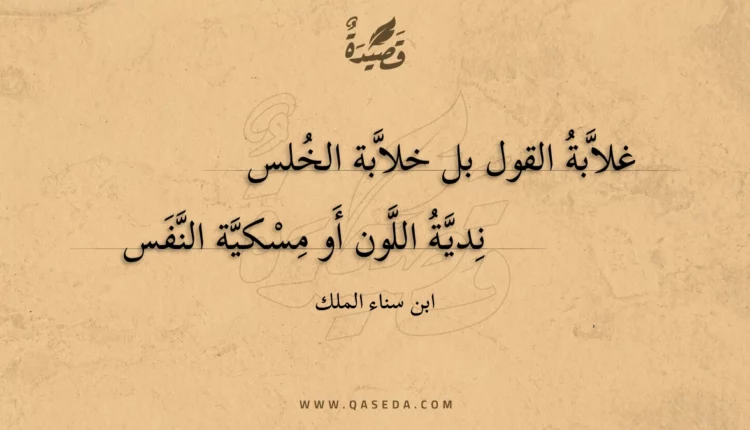 قَصِيْدَةٌ
غلاَّبةُ القول بل خلاَّبة الخُلس
نِديَّةُ اللَّون أَو مِسْكيَّة النَّفَس
ابن سناء الملك
WWW.QASEDA.COM